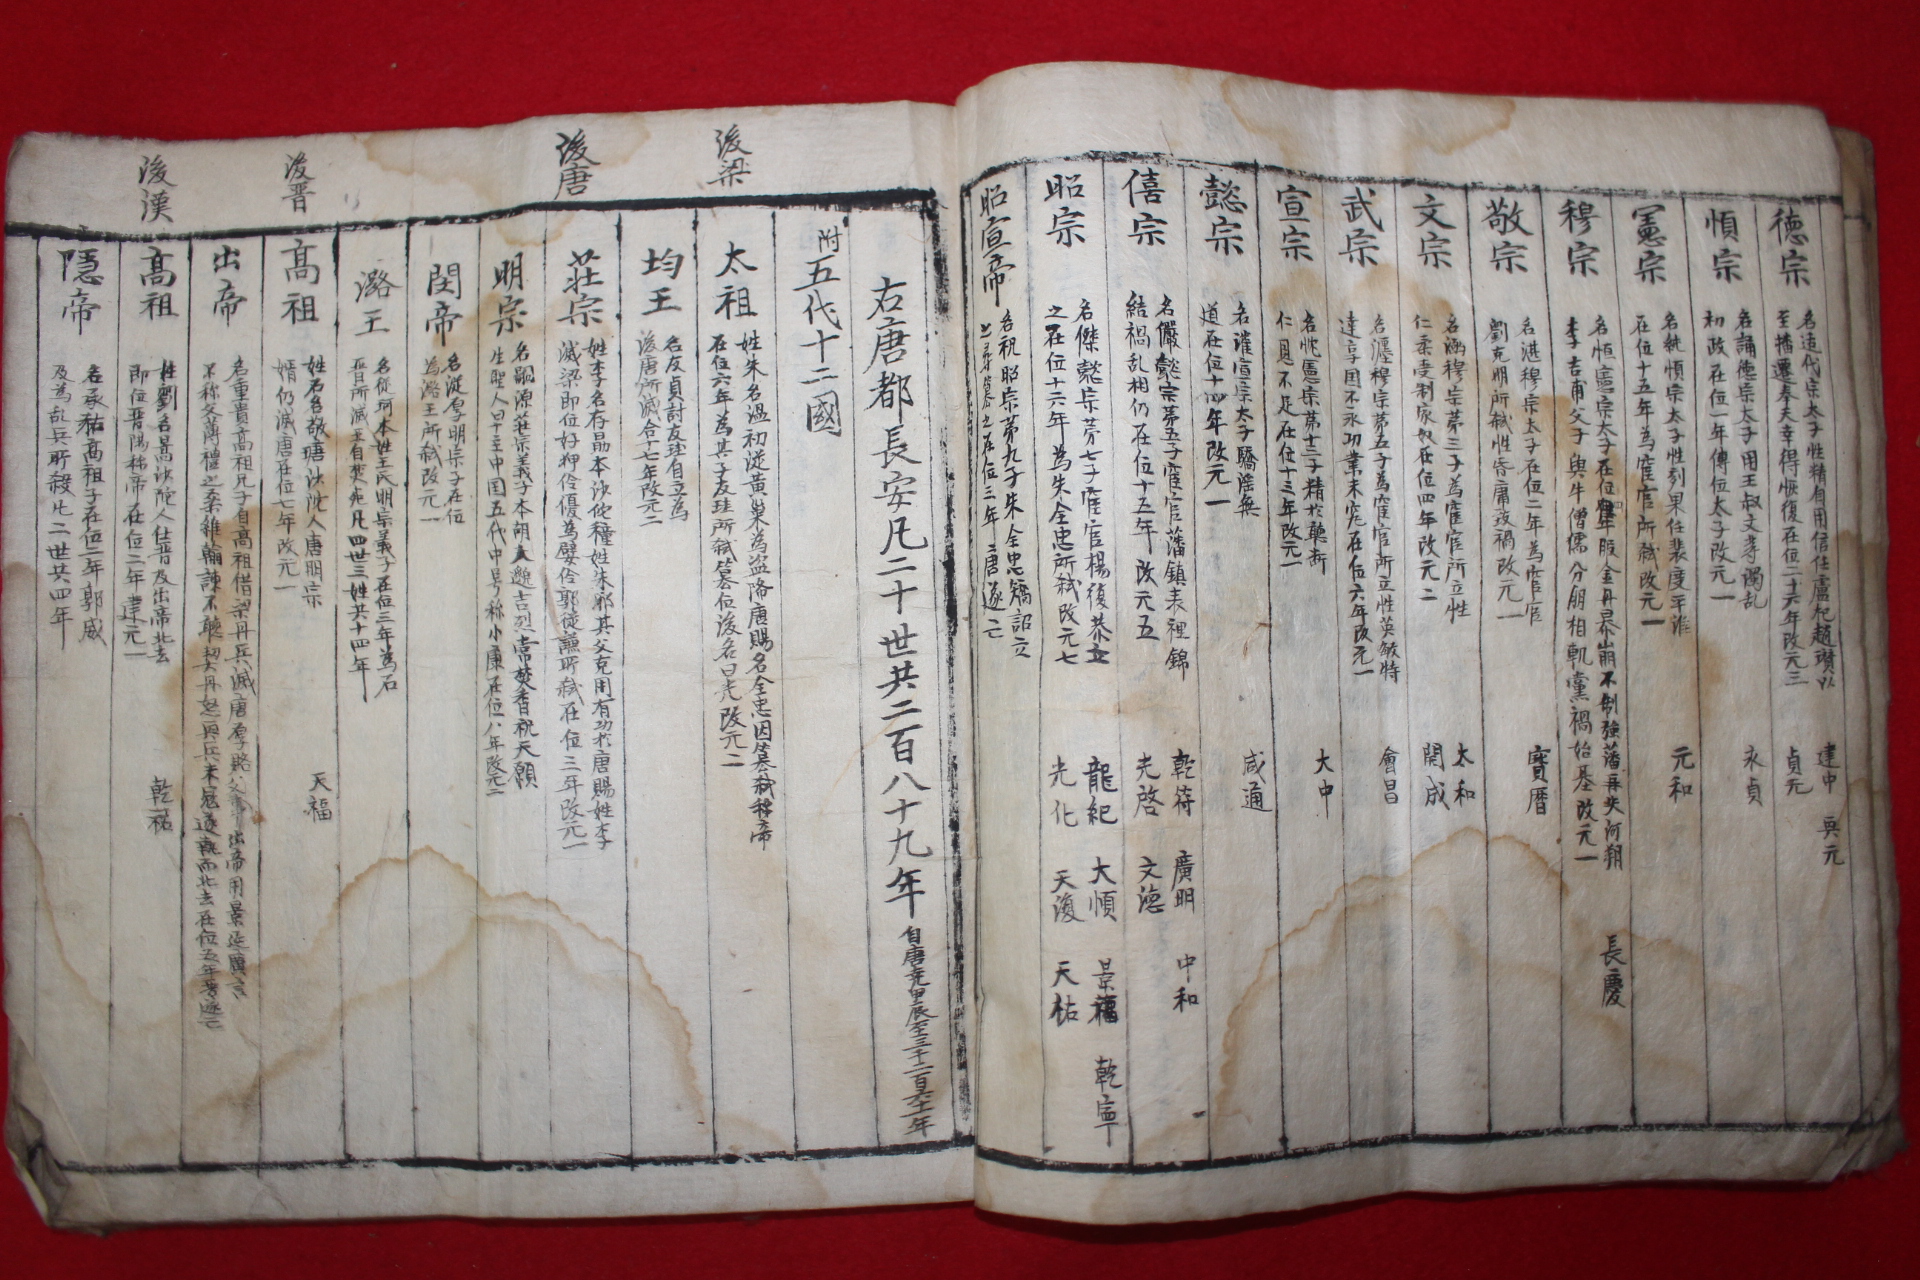 德宗
名适代宗太子性精自用信任盧杞趙贊以
至播遷奉天幸得恢復在位二十六年改元三
建中 興元
貞元
順宗
名誦德宗太子用王叔文等濁乱
初政在位一年傳位太子改元一
永貞
憲宗
名純順宗太子性剛果任裴度平淮
在位十五年為宦官所弑改元一
元和
穆宗
名恒憲宗太子在位 年服金丹暴崩不制強藩再失河朔
李吉甫父子與牛僧儒分朋相軋黨禍始基改元一
長慶
敬宗
名湛穆宗太子在位二年為宦官
劉克明所弑性昏庸致禍改元一
寶曆
文宗
名涵穆宗第二子為宦官所立性
仁柔受制家奴在位四年改元二
太和
開成
武宗
名瀍穆宗第五子為宦官所立性英敏特
達享国不永功業未究在位六年改元一
會昌
宣宗
名忱憲宗第十三子精於聽断
仁恩不足在位十三年改元一
大中
懿宗
名漼宣宗太子驕滛無
道在位十四年改元一
咸通
僖宗
名儼懿宗第五子宦官藩鎮表裡錦
結禍乱相仍在位十五年改元五
乾符 廣明 中和
光啓 文德
昭宗
名傑懿宗第七子宦官楊復恭立
之在位十六年為朱全忠所弑改元七
龍紀 大順 景福 乾寧
光化 天復 天祐
昭宣帝
名祝昭宗第九子朱全忠矯詔立
之尋簒之在位三年唐遂亡
右唐都長安凡二十世共二百八十九年
附五代十二國
後梁
太祖
姓朱名溫初從黃巢為盜降唐賜名全忠因簒弑稱帝
在位六年為其子友珪所弑簒位後名曰晃改元二
均王
名友貞討友珪自立為
後唐所滅合七年改元二
後唐
莊宗
姓李名存勗本沙陀種姓朱邪其父克用有功於唐賜姓李
滅梁即位好狎伶優為嬖伶郭從謙所弑在位三年改元一
明宗
名嗣源莊宗義子本胡人邈吉烈常焚香祝天願
生聖人早主中国五代中号称小康在位八年改元二
閔帝
名從厚明宗子在位
為潞王所弑改元一
潞王
名從珂本姓王氏明宗義子在位三年為石
晋所滅王自焚死凡四世三姓共十四年
後晋
高祖
姓石名敬瑭沙陀人唐明宗
婿仍滅唐在位七年改元一
天福
出帝
名重貴高祖兄子自高祖借契丹兵滅唐
後漢
高祖
姓劉名暠沙陀人仕晋及出帝北去
即位晋陽称帝在位二年建元一
乾祐
隱帝
名承祐高祖子在位二年郭威
及為乱兵所殺凡二世共四年